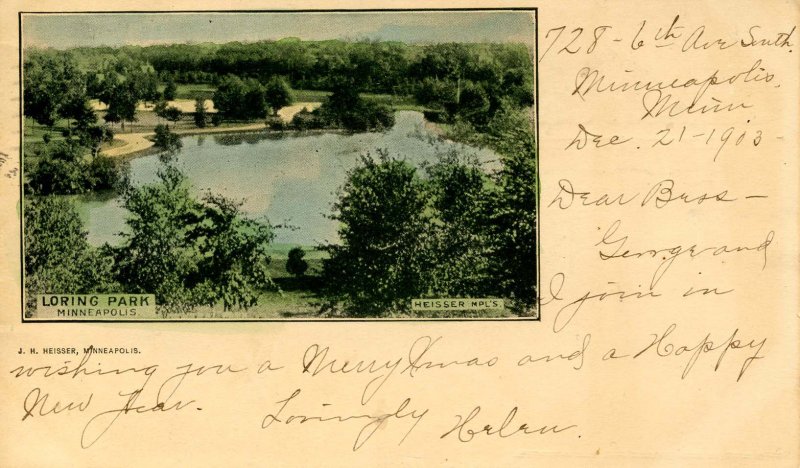 728 - 6th Ave South.
Minneapolis.
Minn
Dec. 21 - 1903
Dear Bess -
George and
I join in
wishing you a Merry Xmas and a Happy
New Year.
Lovingly Helen.
LORING PARK
MINNEAPOLIS.
HEISSER MPL'S.
J. H. HEISSER, MINNEAPOLIS.